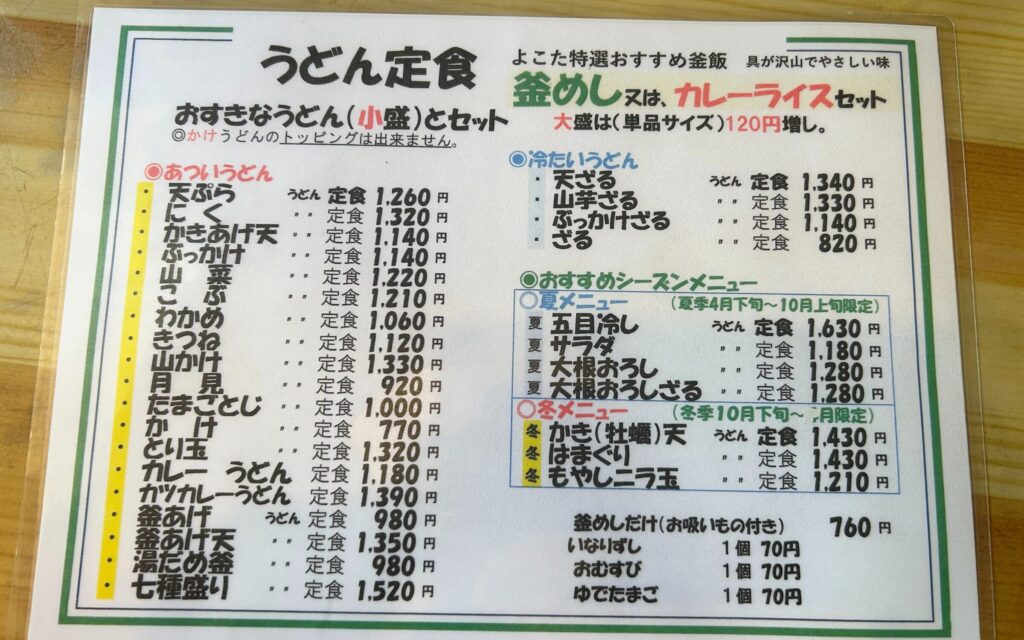 うどん定食
よこた特選おすすめ釜飯 具が沢山でやさしい味
おすきなうどん(小盛)とセット
釜めし又は、カレーライスセット
◎かけうどんのトッピングは出来ません。
大盛は(単品サイズ)120円増し。
◉あついうどん
・天ぷら うどん 定食 1,260円
・にく 〃 定食 1,320円
・かきあげ天 〃 定食 1,140円
・ぶっかけ 〃 定食 1,140円
・山菜 〃 定食 1,220円
・こぶ 〃 定食 1,210円
・わかめ 〃 定食 1,060円
・きつね 〃 定食 1,120円
・山かけ 〃 定食 1,330円
・月見 〃 定食 920円
・たまごとじ 〃 定食 1,000円
・かけ 〃 定食 770円
・とり玉 〃 定食 1,320円
・カレー うどん 〃 定食 1,180円
・カツカレーうどん 〃 定食 1,390円
・釜あげ うどん 定食 980円
・釜あげ天 〃 定食 1,350円
・湯だめ釜 〃 定食 980円
・七種盛り 〃 定食 1,520円
◉冷たいうどん
・天ざる うどん 定食 1,340円
・山芋ざる 〃 定食 1,330円
・ぶっかけざる 〃 定食 1,140円
・ざる 〃 定食 820円
◉おすすめシーズンメニュー
○夏メニュー (夏季4月下旬～10月上旬限定)
夏 五目冷し うどん 定食 1,630円
夏 サラダ 〃 定食 1,180円
夏 大根おろし 〃 定食 1,280円
夏 大根おろしざる 〃 定食 1,280円
○冬メニュー (冬季10月下旬～月限定)
冬 かき(牡蠣)天 うどん 定食 1,430円
冬 はまぐり 〃 定食 1,430円
冬 もやしニラ玉 〃 定食 1,210円
釜めしだけ(お吸いもの付き) 760円
いなりずし 1個 70円
おむすび 1個 70円
ゆでたまご 1個 70円